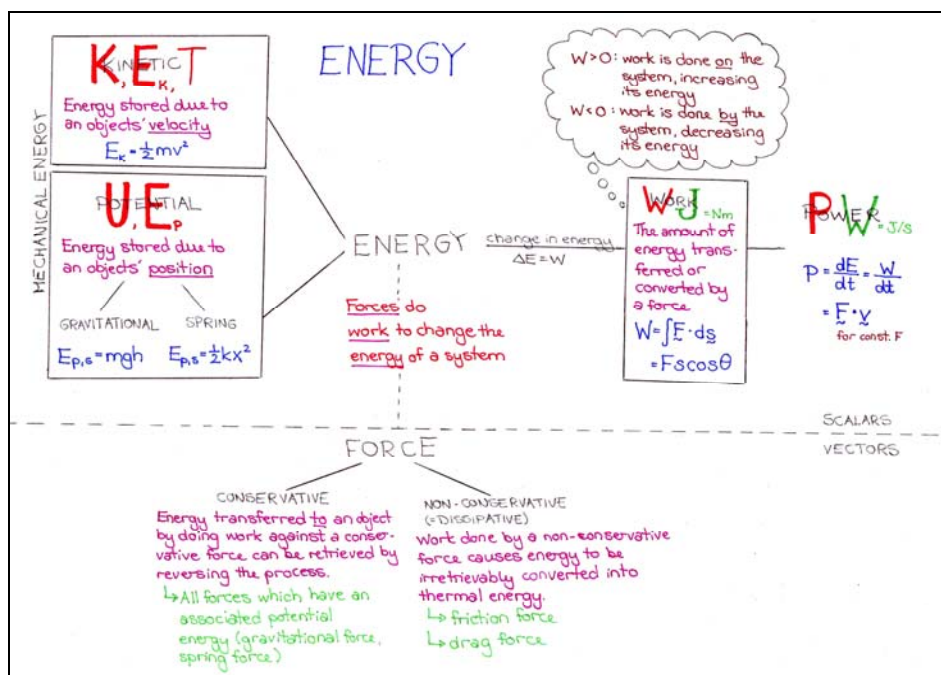 ENERGY
MECHANICAL ENERGY
KINETIC
K, E_K, T
Energy stored due to
an objects' velocity
E_K = ½mv²
POTENTIAL
U, E_P
Energy stored due to
an objects' position
GRAVITATIONAL
E_P,s = mgh
SPRING
E_P,s = ½kx²
ENERGY
change in energy
ΔE = W
Forces do
work to change the
energy of a system
W>0: work is done on the
system, increasing
its energy
W<0: work is done by the
system, decreasing
its energy
WORK
W J = Nm
The amount of
energy trans-
ferred or
converted by
a force
W = ∫F · ds
= Fscosθ
POWER
P W = J/s
P = dE/dt = W/dt
= F · v
for const. F
SCALARS
VECTORS
FORCE
CONSERVATIVE
Energy transferred to an object
by doing work against a conser-
vative force can be retrieved by
reversing the process.
↳All forces which have an
associated potential
energy (gravitational force,
spring force)
NON-CONSERVATIVE
(=DISSIPATIVE)
Work done by a non-conservative
force causes energy to be
irretrievably converted into
thermal energy.
↳friction force
↳drag force